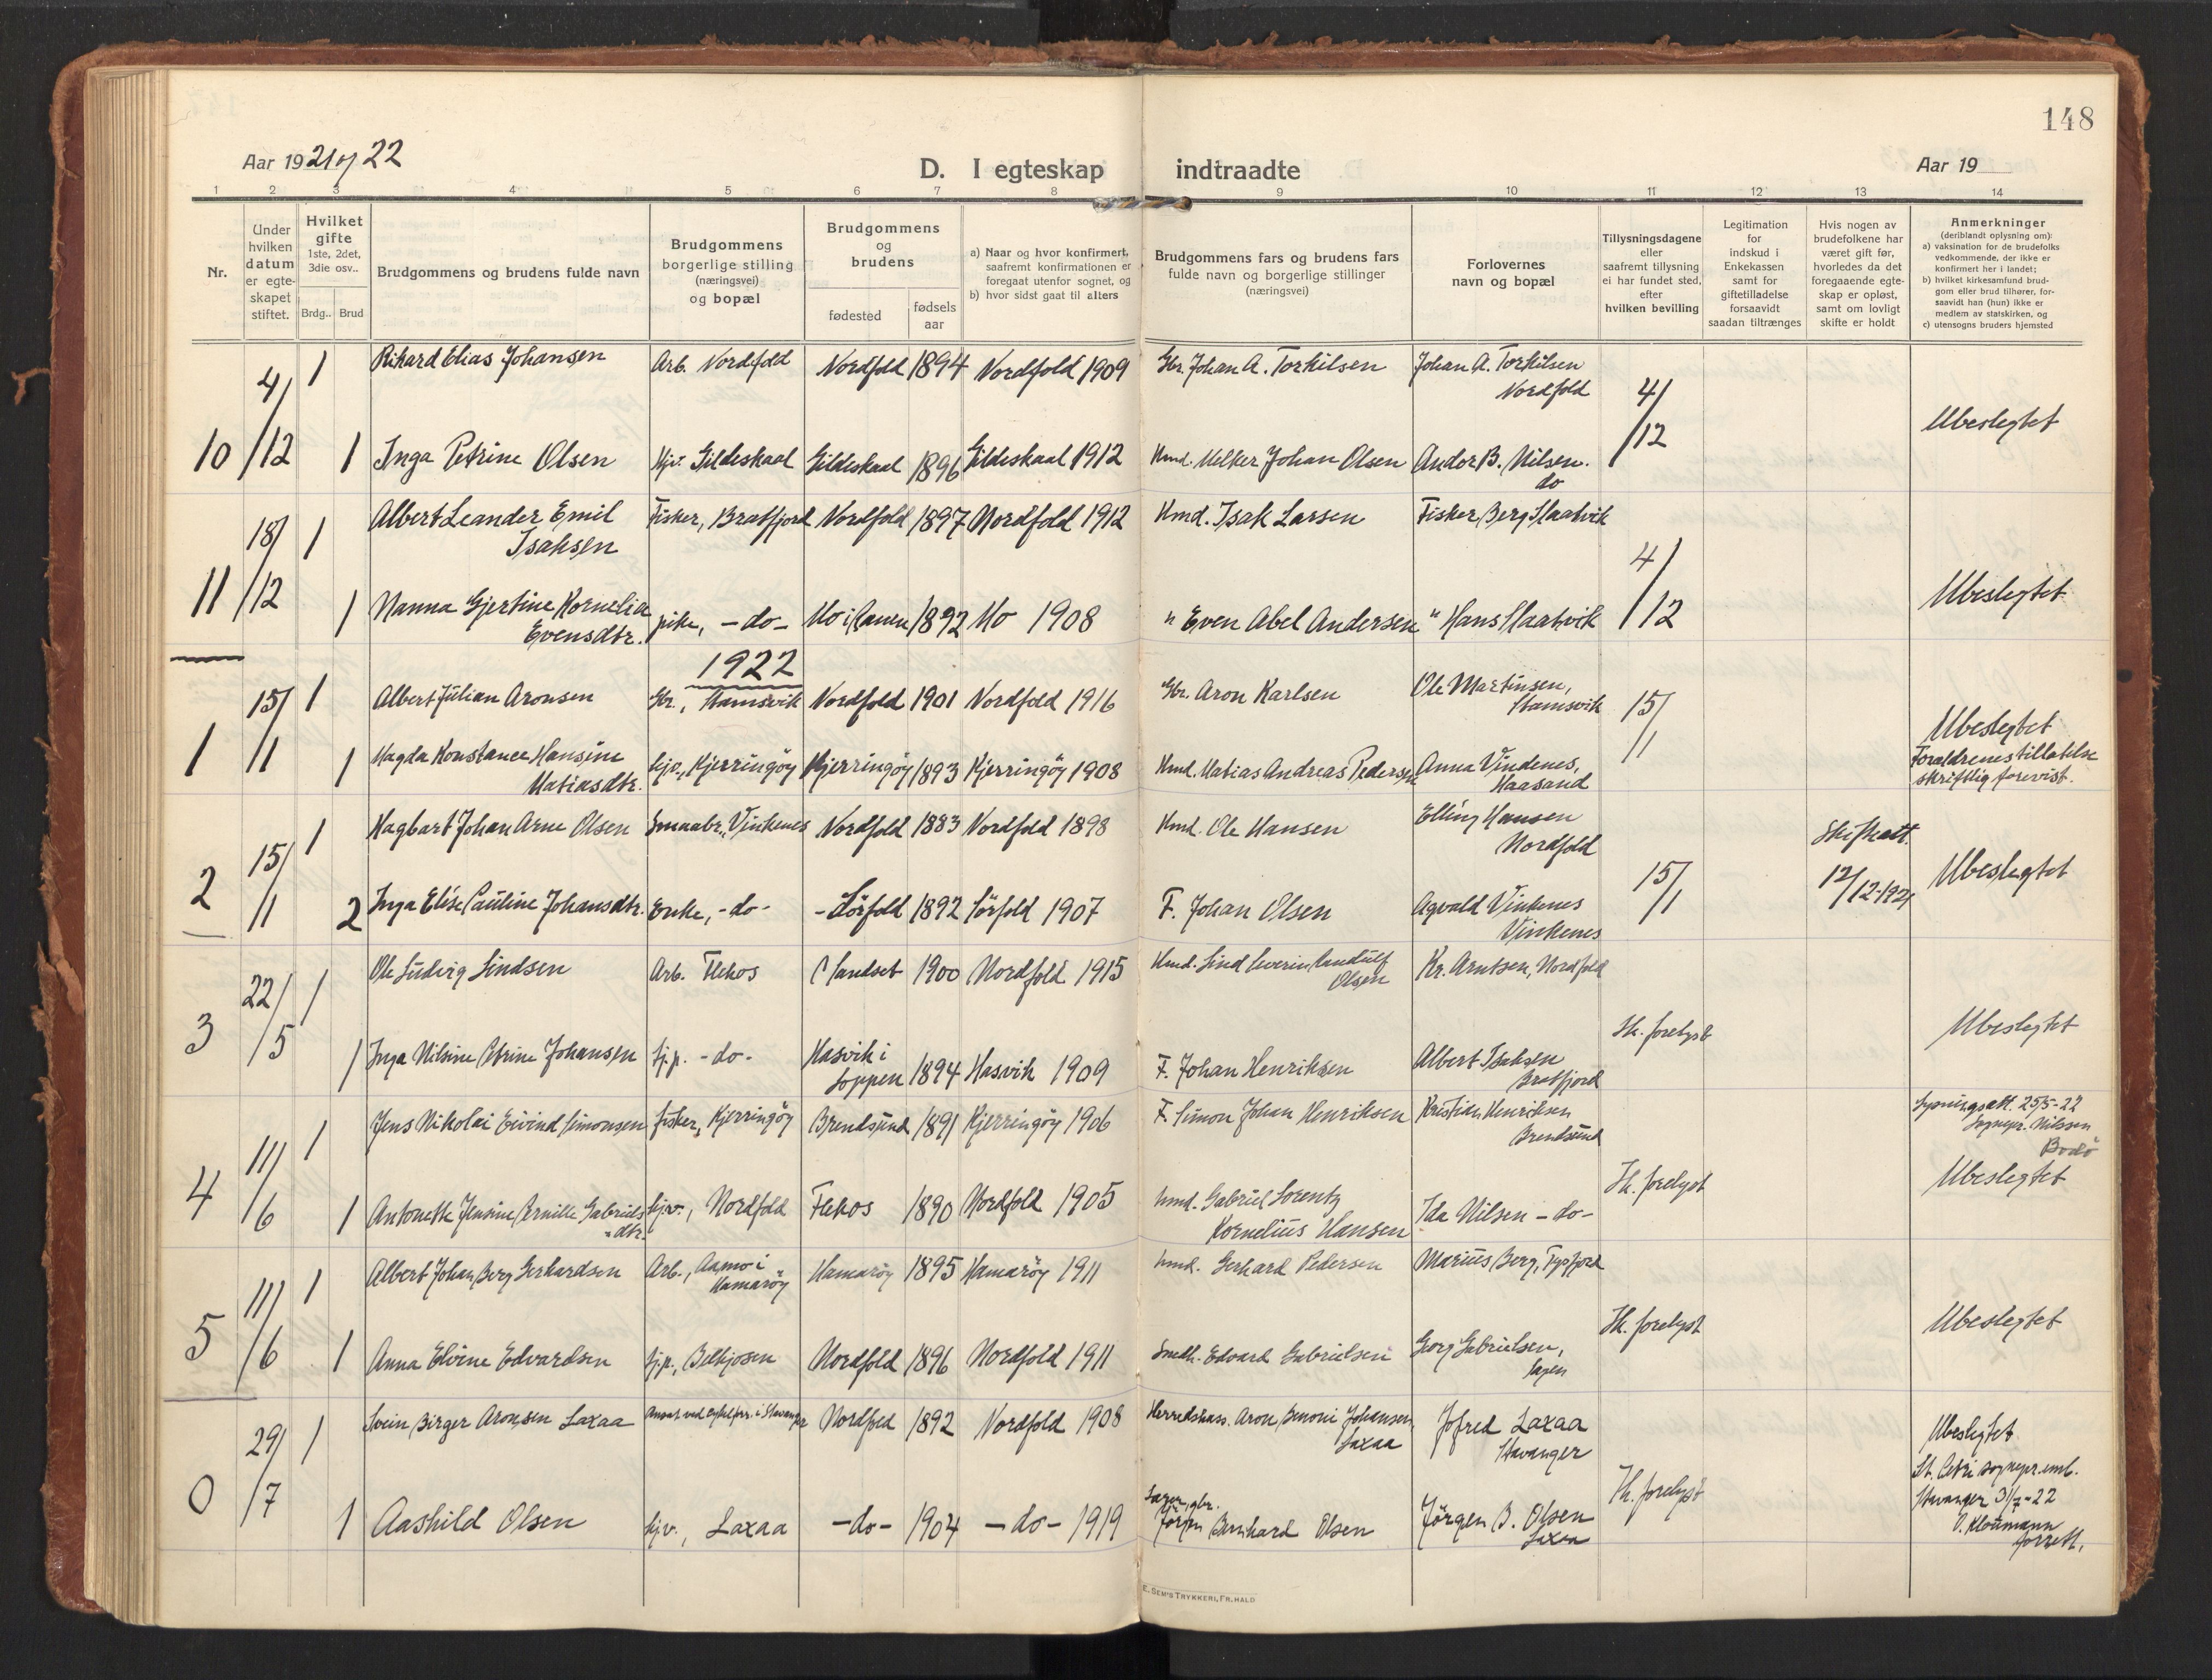 148
Aar 1921 og 22
D. I egteskap indtraadte
Aar 19
1 2 3 4 5 6 7 8 9 10 11 12 13 14
Nr.
Under hvilken datum er egte-skapet stiftet.
Hvilket gifte
1ste, 2det, 3die osv..
Brdg.. Brud
Brudgommens og brudens fulde navn
Brudgommens borgerlige stilling (næringsvei) og bopæl
Brudgommens og brudens
fødested
fødsels aar
a) Naar og hvor konfirmert, saafremt konfirmationen er foregaat utenfor sognet, og
b) hvor sidst gaat til alters
Brudgommens fars og brudens fars fulde navn og borgerlige stillinger (næringsvei)
Forlovernes navn og bopæl
Tillysningsdagene eller saafremt tillysning ei har fundet sted, efter hvilken bevilling
Legitimation for indskud i Enkekassen samt for giftetilladelse forsaavidt saadan tiltrænges
Hvis nogen av brudefolkene har været gift før, hvorledes da det foregaaende egte-skap er opløst, samt om lovligt skifte er holdt
Anmerkninger
(deriblandt oplysning om):
a) vaksination for de brudefolks vedkommende, der ikke er konfirmert her i landet;
b) hvilket kirkesamfund brud-gom eller brud tilhører, for-saavidt han (hun) ikke er medlem av statskirken, og
c) utensogns bruders hjemsted
10 4/12 1 Rikard Elias Johansen Arb. Nordfold Nordfold 1894 Nordfold 1909 Gbr. Johan A. Torkilsen Johan A. Torkilsen Nordfold 4/12 Ubeslegtet
1 Inga Petrine Olsen Hjv. Gildeskaal Gildeskaal 1896 Gildeskaal 1912 Kmd. Melker Johan Olsen Andor B. Nilsen. do
11 18/12 1 Albert Leander Emil Isaksen Fisker, Bratfjord Nordfold 1897 Nordfold 1912 Kmd. Isak Larsen Fisker Berg Slaatvik 4/12 Ubeslegtet
1 Nanna Gjertine Kornelia Evensdtr. pike, -do- Mo i Ranen 1892 Mo 1908 " Even Abel Andersen " Hans Slaatvik
1922
1 15/1 1 Albert Julian Aronsen Gbr., Stamsvik Nordfold 1901 Nordfold 1916 Gbr. Aron Karlsen Ole Martinsen, Stamsvik 15/1 Ubeslegtet
Forældrenes tillatelse skriftlig forevist.
1 Magda Konstance Hansine Matiasdtr. Hjv., Kjerringøy Kjerringøy 1893 Kjerringøy 1908 Kmd. Matias Andreas Pedersen Anna Vindenes, Haasand
2 15/1 1 Hagbart Johan Arne Olsen Smaabr., Vinkenes Nordfold 1883 Nordfold 1898 Kmd. Ole Hansen Elling Hansen Nordfold 15/1 Skifteatt. 12/12-1921 Ubeslegtet
2 Inga Elise Pauline Johansdtr. Enke, -do- -Sörfold 1892 Sörfold 1907 F. Johan Olsen Agvald Vinkenes Vinkenes
3 22/5 1 Ole Ludvig Lindsen Arb. Flekos Sandset 1900 Nordfold 1915 Kmd. Lind Severin Olsen Kr. Arntsen, Nordfold Ubeslegtet
1 Inga Nilsine Petrine Johansen tj.p. -do- Hasvik i Loppen 1894 Hasvik 1909 F. Johan Henriksen Albert Isaksen Bratfjord
4 11/6 1 Jens Nikolai Eivind Simonsen fisker, Kjerringöy Brendsund 1891 Kjerringöy 1906 F. Simon Johan Henriksen Kristian Henriksen Brendsund
Lysningsatt. 25/5-22 Sognepr. Nilssen Bodö
Ubeslegtet
1 Antonette Jensine Pernille Gabriels-dtr. Hjv., Nordfold Flekos 1890 Nordfold 1905 Kmd. Gabriel Lorentz Kornelius Hansen Ida Nilsen -do-
5 11/6 1 Albert Johan Berg Gerhardsen Arb., i Hamaröy Hamaröy 1895 Hamaröy 1911 Kmd. Gerhard Pedersen Marius Berg, Tysfjord Ubeslegtet
1 Anna Elvine Edvardsen tj.p., Nordfold 1896 Nordfold 1911 Smdh. Edvard Gabrielsen Georg Gabrielsen,
0 29/7 1 Svein Birger Aronsen Laxaa Nordfold 1892 Nordfold 1908 Herredskass. Aron Benoni Johansen, Laxaa Jofred Laxaa Stavanger
Ubeslegtet
St. Petri sognepr. emb.
Stavanger 31/7-22
1 Aashild Olsen Hjv., Laxaa -do- 1904 -do- 1919 Jörgen Bernhard Olsen Jörgen B. Olsen Laxaa
E. SEM'S TRYKKERI, FR.HALD